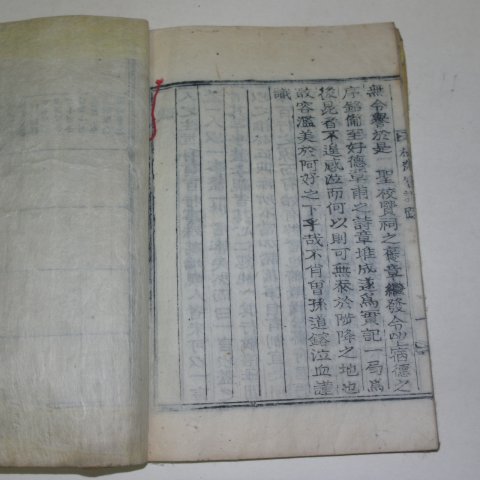 無令譽於是 聖校賢祠之薦章繼發令望宿德之
序銘備至好德章甫之詩章堆成遂爲實記一局爲
後昆者不遑感泣而何以則可無忝於陟降之地也
敢容溢美於阿好之下乎哉不肖曾孫道鎔泣血謹
識